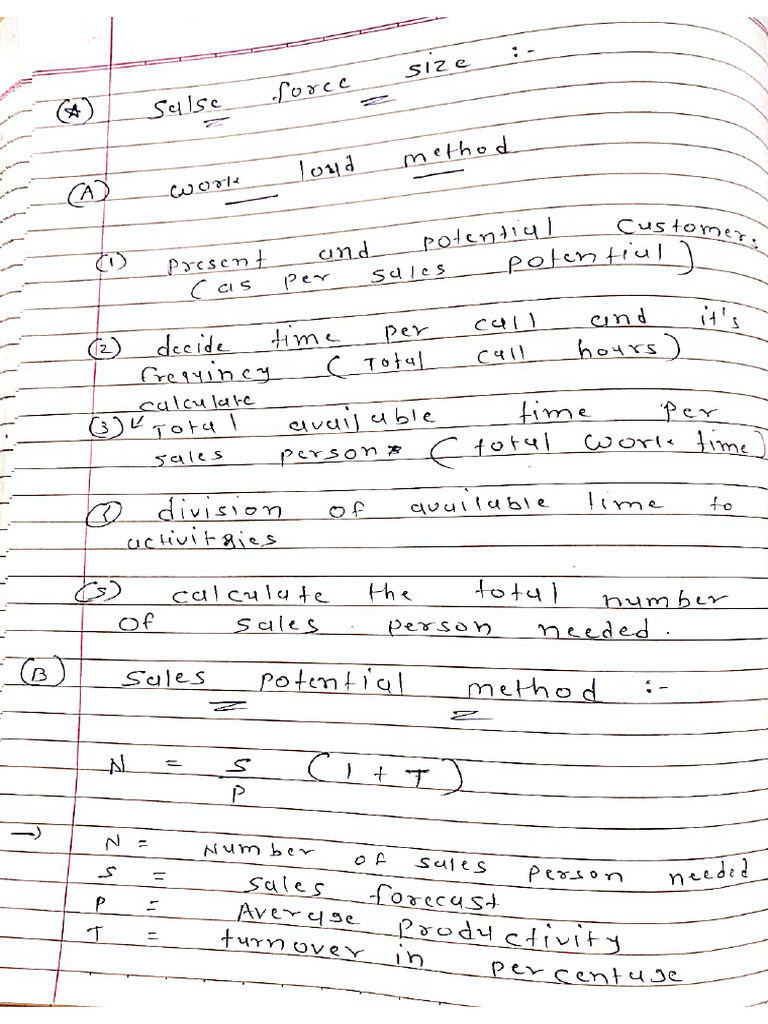 (A) Salse force size :-
(A) work load method
(1) present and potential customer.
(as per sales potential)
(2) decide time per call and it's
frequincy (Total call hours)
calculate
(3) Total available time per
sales person (total work time)
division of available time to
activities
(5) calculate the total number
of sales person needed.
(B) Sales potential method :-
N = S (1 + T)
P
→ N = Number of sales person needed
S = sales forecast
P = Average Productivity
T = turnover in percentage